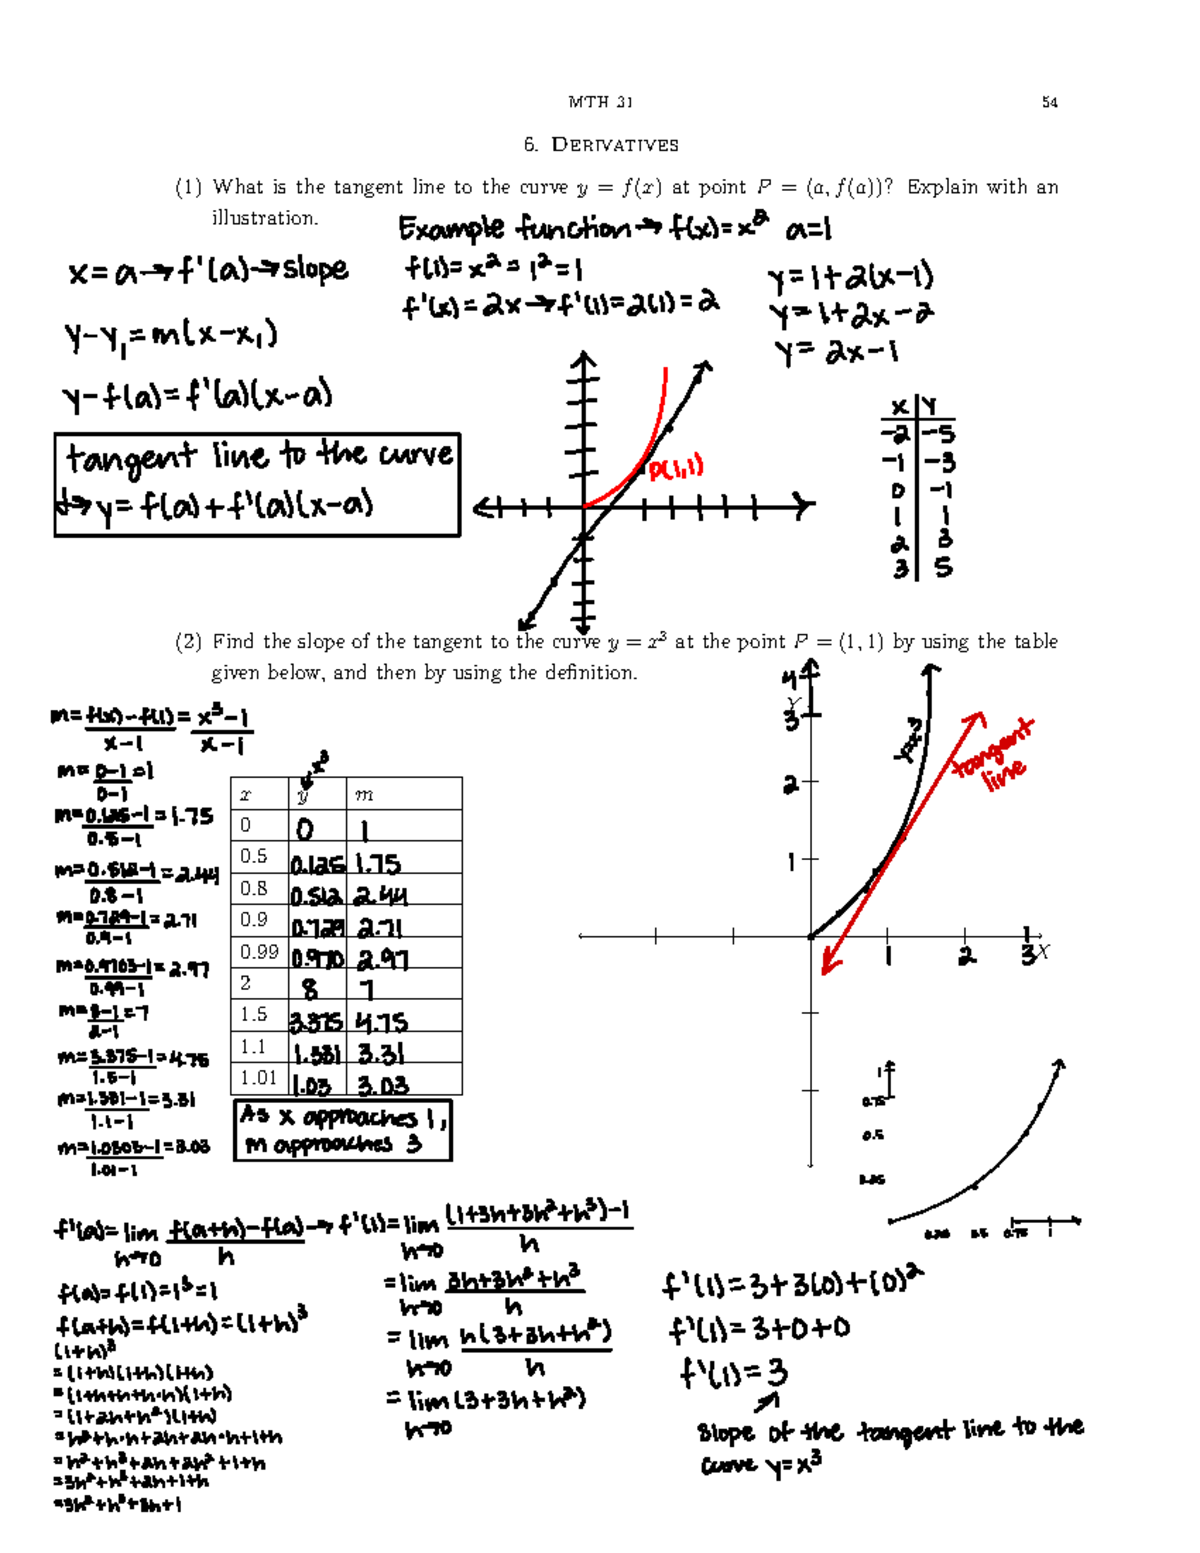 MTH 31
54
6. Derivatives
(1) What is the tangent line to the curve y = f(x) at point P = (a, f(a))? Explain with an
illustration.
Example function → f(x)=x² a=1
x=a→f'(a)→slope
f(1)=x²=1²=1
f'(x)=2x→f'(1)=2(1)=2
y=1+2(x-1)
y=1+2x-2
y=2x-1
y-y₁=m(x-x₁)
y-f(a)=f'(a)(x-a)
tangent line to the curve
↳ y=f(a)+f'(a)(x-a)
P(1,1)
x y
-2 -5
-1 -3
0 -1
1 1
2 3
3 5
(2) Find the slope of the tangent to the curve y = x³ at the point P = (1, 1) by using the table
given below, and then by using the definition.
m=f(x)-f(1)/x-1=x³-1/x-1
m=0-1/0-1=1
m=0.125-1/0.5-1=1.75
m=0.512-1/0.8-1=2.44
m=0.729-1/0.9-1=2.71
m=0.9703-1/0.99-1=2.97
m=8-1/2-1=7
m=3.375-1/1.5-1=4.75
m=1.331-1/1.1-1=3.31
m=1.0303-1/1.01-1=3.03
x³
x y m
0 0 1
0.5 0.125 1.75
0.8 0.512 2.44
0.9 0.729 2.71
0.99 0.970 2.97
2 8 7
1.5 3.375 4.75
1.1 1.331 3.31
1.01 1.03 3.03
As x approaches 1,
m approaches 3
4
Y
3
2
1
y=x³
tangent
line
1 2 3 X
1
0.75
0.5
0.25
0.25 0.5 0.75 1
f'(a)=lim h→0 f(a+h)-f(a)/h → f'(1)=lim h→0 (1+3h+3h²+h³)-1/h
f(a)=f(1)=1³=1
f(a+h)=f(1+h)=(1+h)³
(1+h)³
=(1+h)(1+h)(1+h)
=(1+h+h+h·h)(1+h)
=(1+2h+h²)(1+h)
=h²+h²·h+2h+2h·h+1+h
=h²+h³+2h+2h²+1+h
=3h²+h³+2h+1+h
=3h²+h³+3h+1
=lim h→0 3h+3h²+h³/h
=lim h→0 h(3+3h+h²)/h
=lim h→0 (3+3h+h²)
f'(1)=3+3(0)+(0)²
f'(1)=3+0+0
f'(1)=3
Slope of the tangent line to the
curve y=x³